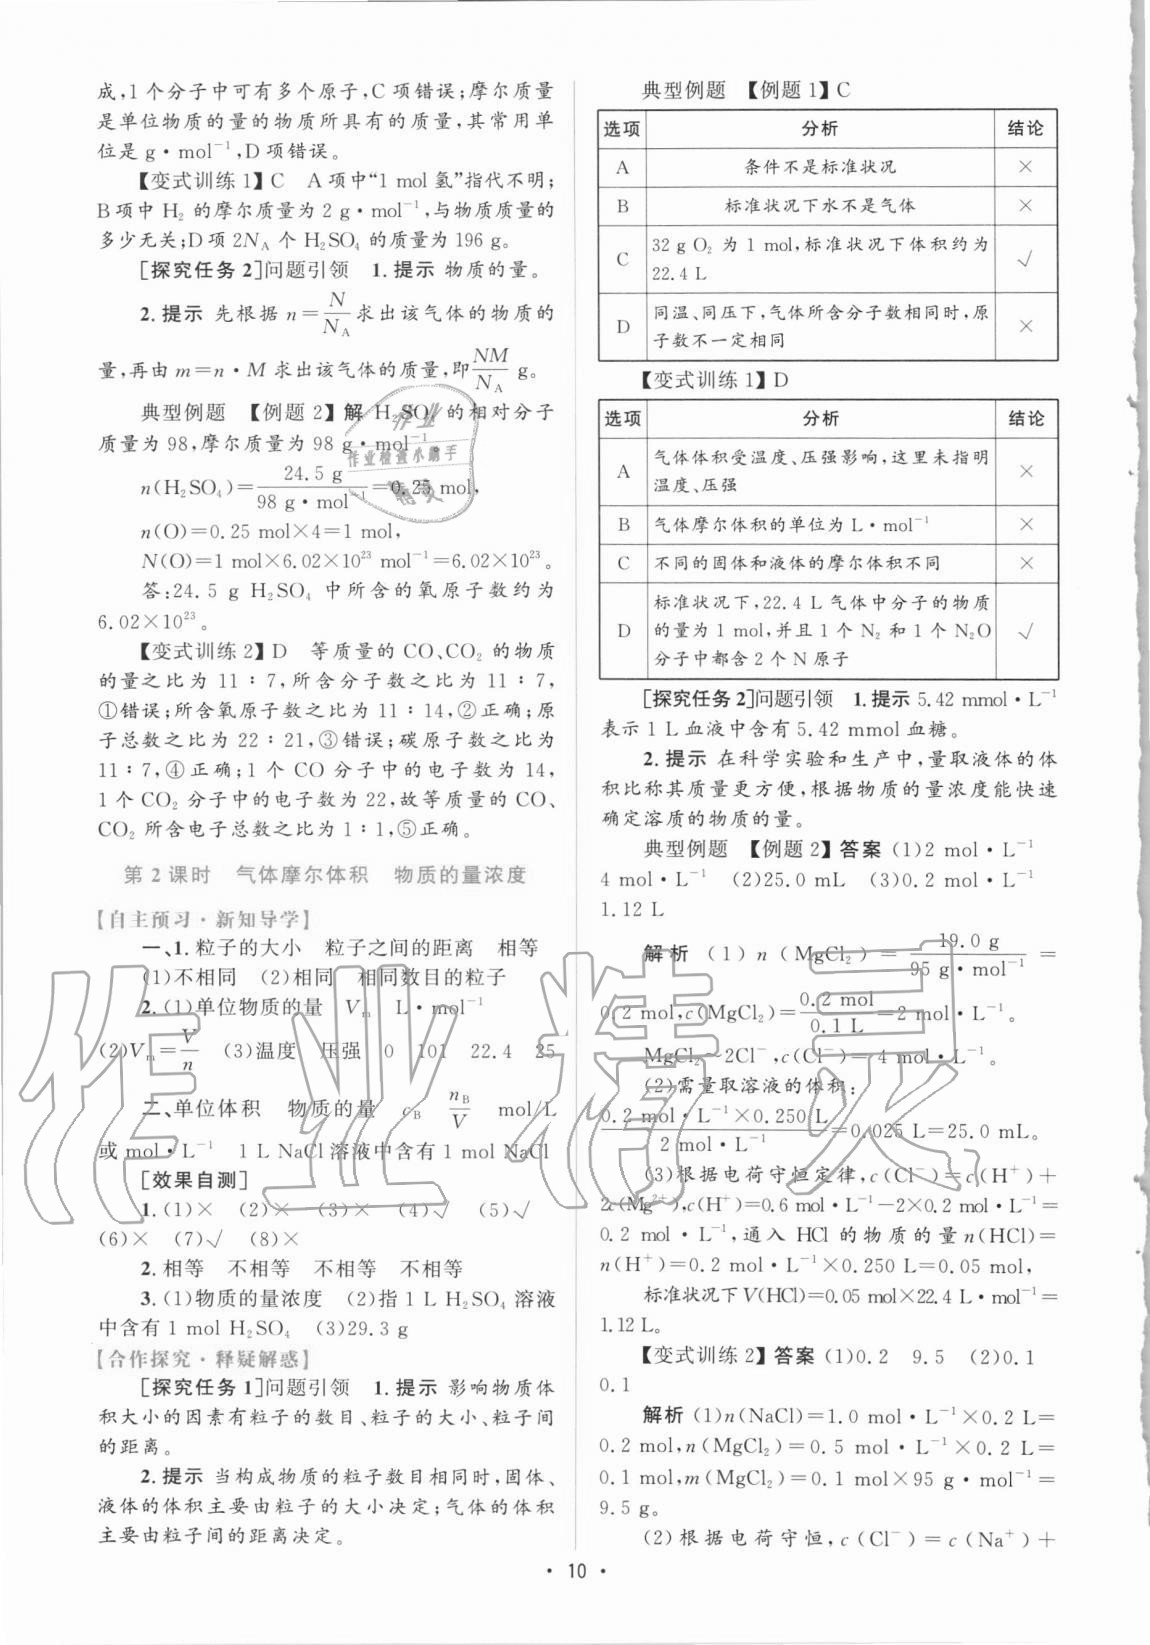 成,1个分子中可有多个原子,C项错误;摩尔质量
是单位物质的量的物质所具有的质量,其常用单
位是 g·mol⁻¹,D项错误。
【变式训练1】C A项中“1 mol氢”指代不明;
B项中 H₂ 的摩尔质量为 2 g·mol⁻¹,与物质质量的
多少无关;D项 2N_A 个 H₂SO₄ 的质量为 196 g。
[探究任务2]问题引领 1.提示 物质的量。
2.提示 先根据 n=N/N_A 求出该气体的物质的
量,再由 m=n·M 求出该气体的质量,即 NM/N_A g。
典型例题 【例题2】解 H₂SO₄ 的相对分子
质量为98,摩尔质量为 98 g·mol⁻¹
n(H₂SO₄)=24.5 g/98 g·mol⁻¹=0.25 mol,
n(O)=0.25 mol×4=1 mol,
N(O)=1 mol×6.02×10²³ mol⁻¹=6.02×10²³。
答:24.5 g H₂SO₄ 中所含的氧原子数约为
6.02×10²³。
【变式训练2】D 等质量的 CO、CO₂ 的物质
的量之比为 11∶7,所含分子数之比为 11∶7,
①错误;所含氧原子数之比为 11∶14,②正确;原
子总数之比为 22∶21,③错误;碳原子数之比为
11∶7,④正确;1个 CO 分子中的电子数为 14,
1个 CO₂ 分子中的电子数为22,故等质量的 CO、
CO₂ 所含电子总数之比为 1∶1,⑤正确。
第2课时 气体摩尔体积 物质的量浓度
【自主预习·新知导学】
一、1.粒子的大小 粒子之间的距离 相等
(1)不相同 (2)相同 相同数目的粒子
2.(1)单位物质的量 V_m L·mol⁻¹
(2)V_m=V/n (3)温度 压强 0 101 22.4 25
二、单位体积 物质的量 c_B n_B/V mol/L
或 mol·L⁻¹ 1 L NaCl溶液中含有 1 mol NaCl
[效果自测]
1.(1)× (2)× (3)× (4)√ (5)√
(6)× (7)√ (8)×
2.相等 不相等 不相等 不相等
3.(1)物质的量浓度 (2)指 1 L H₂SO₄ 溶液
中含有 1 mol H₂SO₄ (3)29.3 g
【合作探究·释疑解惑】
[探究任务1]问题引领 1.提示 影响物质体
积大小的因素有粒子的数目、粒子的大小、粒子间
的距离。
2.提示 当构成物质的粒子数目相同时,固体、
液体的体积主要由粒子的大小决定;气体的体积
主要由粒子间的距离决定。
典型例题 【例题1】C
选项 分析 结论
A 条件不是标准状况 ×
B 标准状况下水不是气体 ×
C 32 g O₂ 为 1 mol,标准状况下体积约为
22.4 L √
D 同温、同压下,气体所含分子数相同时,原
子数不一定相同 ×
【变式训练1】D
选项 分析 结论
A 气体体积受温度、压强影响,这里未指明
温度、压强 ×
B 气体摩尔体积的单位为 L·mol⁻¹ ×
C 不同的固体和液体的摩尔体积不同 ×
D 标准状况下,22.4 L 气体中分子的物质
的量为 1 mol,并且 1个 N₂ 和 1个 N₂O
分子中都含2个N原子 √
[探究任务2]问题引领 1.提示 5.42 mmol·L⁻¹
表示 1 L血液中含有 5.42 mmol血糖。
2.提示 在科学实验和生产中,量取液体的体
积比称其质量更方便,根据物质的量浓度能快速
确定溶质的物质的量。
典型例题 【例题2】答案 (1)2 mol·L⁻¹
4 mol·L⁻¹ (2)25.0 mL (3)0.2 mol·L⁻¹
1.12 L
解析 (1) n(MgCl₂)=19.0 g/95 g·mol⁻¹=
0.2 mol,c(MgCl₂)=0.2 mol/0.1 L=2 mol·L⁻¹。
MgCl₂~2Cl⁻,c(Cl⁻)=4 mol·L⁻¹。
(2)需量取溶液的体积:
0.2 mol·L⁻¹×0.250 L/2 mol·L⁻¹=0.025 L=25.0 mL。
(3)根据电荷守恒定律,c(Cl⁻)=c(H⁺)+
2c(Mg²⁺),c(H⁺)=0.6 mol·L⁻¹−2×0.2 mol·L⁻¹=
0.2 mol·L⁻¹,通入 HCl 的物质的量 n(HCl)=
n(H⁺)=0.2 mol·L⁻¹×0.250 L=0.05 mol,
标准状况下V(HCl)=0.05 mol×22.4 L·mol⁻¹=
1.12 L。
【变式训练2】答案 (1)0.2 9.5 (2)0.1
0.1
解析 (1)n(NaCl)=1.0 mol·L⁻¹×0.2 L=
0.2 mol,n(MgCl₂)=0.5 mol·L⁻¹×0.2 L=
0.1 mol,m(MgCl₂)=0.1 mol×95 g·mol⁻¹=
9.5 g。
(2)根据电荷守恒,c(Cl⁻)=c(Na⁺)+
·10·
作业
作业检查小助手
精灵
作业精灵